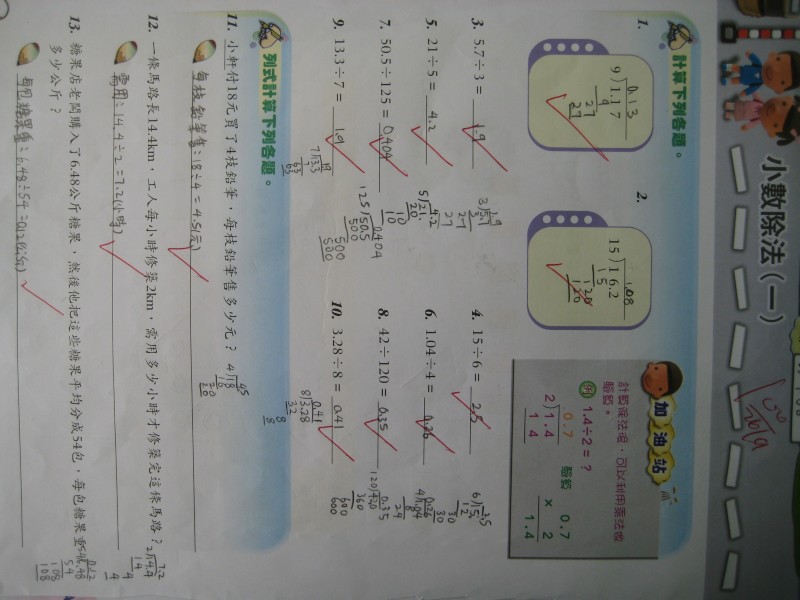 小數除法(一)
計算下列各題。
1.
0.13
9)1.17
9
27
27
2.
1.08
15)16.2
15
120
120
加油站
計算除法後，可以利用乘法做
驗算。
例 1.4÷2=?
0.7
2)1.4
1.4
驗算
0.7
× 2
1.4
3. 5.7÷3= 1.9
4. 15÷6= 2.5
5. 21÷5= 4.2
6. 1.04÷4= 0.26
7. 50.5÷125= 0.404
8. 42÷120= 0.35
9. 13.3÷7= 1.9
10. 3.28÷8= 0.41
列式計算下列各題。
11. 小軒付18元買了4枝鉛筆，每枝鉛筆售多少元？
每枝鉛筆售:18÷4=4.5(元)
12. 一條馬路長14.4km，工人每小時修築2km，需用多少小時才修築完這條馬路？
需用:14.4÷2=7.2(小時)
13. 糖果店老闆購入了6.48公斤糖果，然後他把這些糖果平均分成54包，每包糖果重
多少公斤？
每包糖果重:6.48÷54=0.12(公斤)